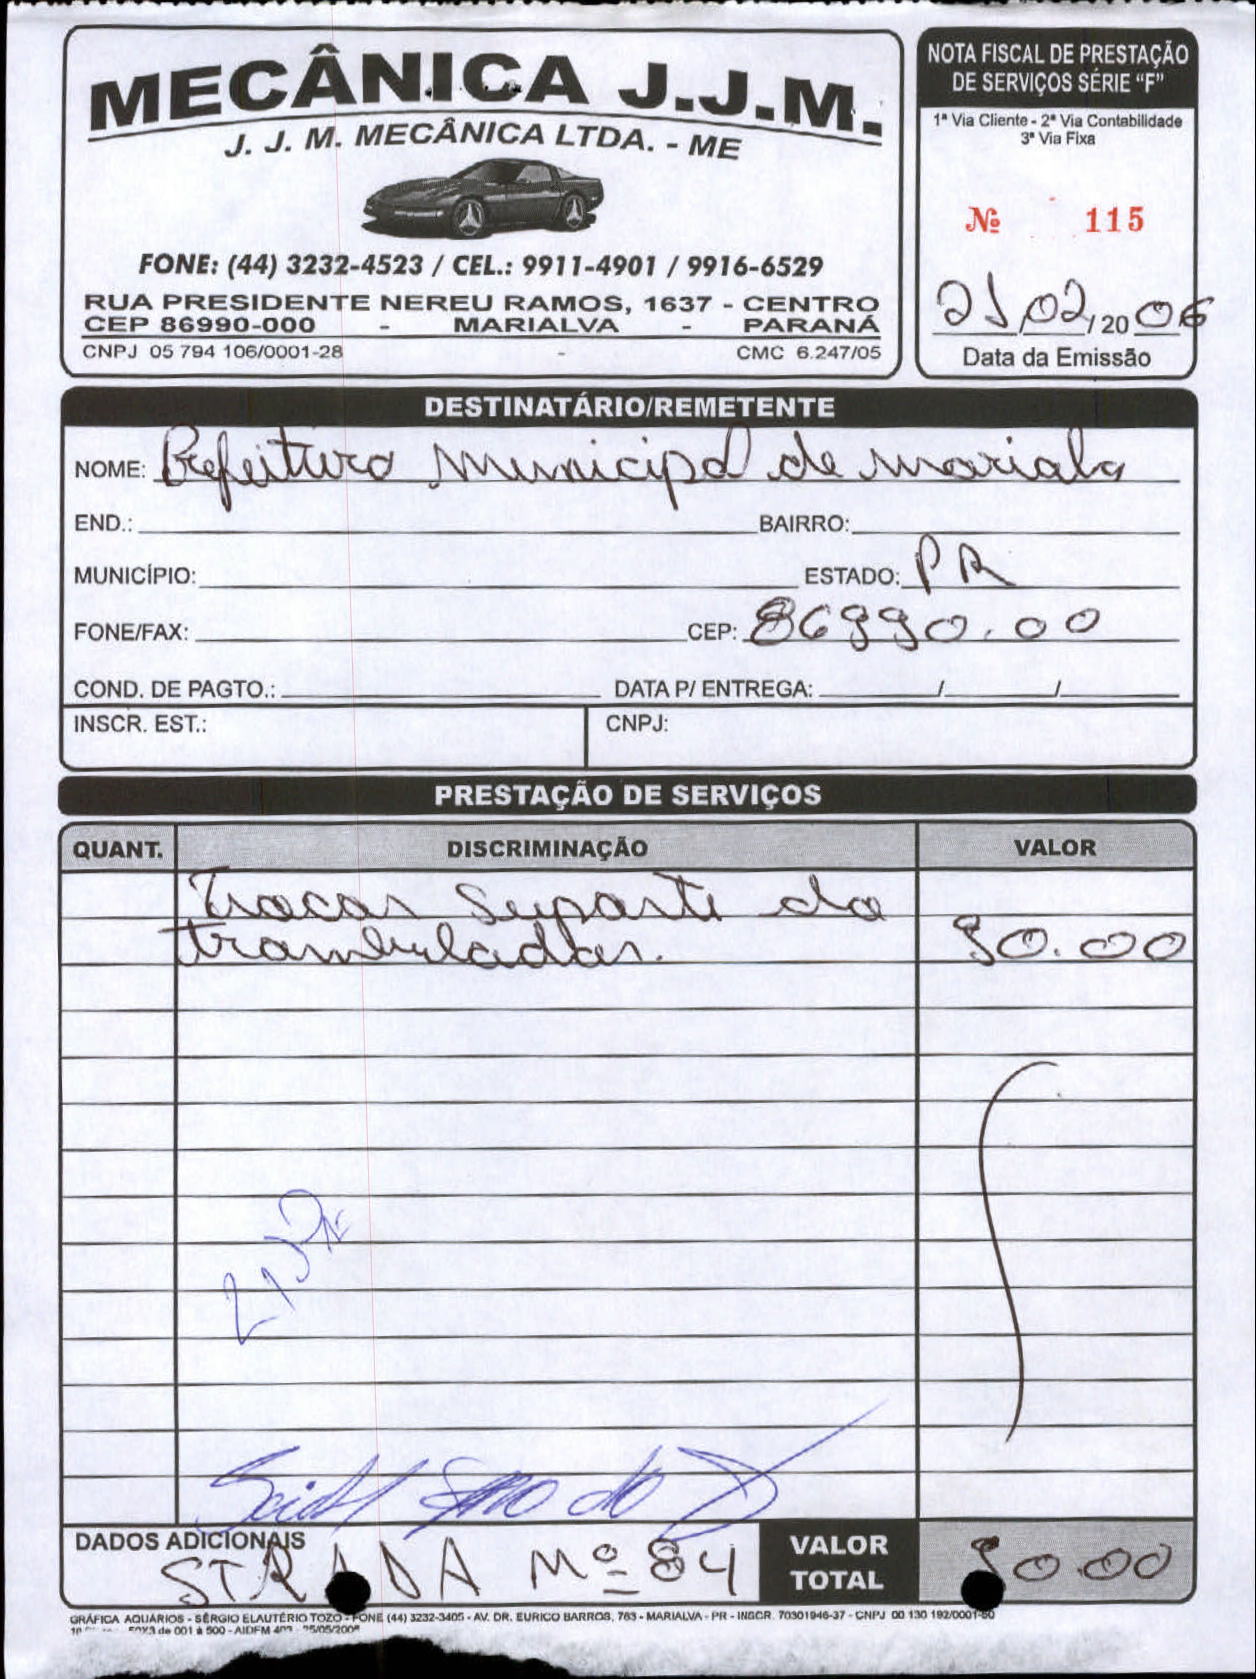 MECÂNICA J.J.M.
J. J. M. MECÂNICA LTDA. - ME
FONE: (44) 3232-4523 / CEL.: 9911-4901 / 9916-6529
RUA PRESIDENTE NEREU RAMOS, 1637 - CENTRO
CEP 86990-000 - MARIALVA - PARANÁ
CNPJ 05 794 106/0001-28 - CMC 6.247/05
NOTA FISCAL DE PRESTAÇÃO
DE SERVIÇOS SÉRIE "F"
1ª Via Cliente - 2ª Via Contabilidade
3ª Via Fixa
Nº 115
21/02/2006
Data da Emissão
DESTINATÁRIO/REMETENTE
NOME: Prefeitura Municipal de marialva
END.: BAIRRO:
MUNICÍPIO: ESTADO: PR
FONE/FAX: CEP: 86990.00
COND. DE PAGTO.: DATA P/ ENTREGA: / /
INSCR. EST.: CNPJ:
PRESTAÇÃO DE SERVIÇOS
QUANT. DISCRIMINAÇÃO VALOR
Trocar Suporte do
trambulador. 90.00
DADOS ADICIONAIS
STRADA Nº 84
VALOR
TOTAL 90.00
GRÁFICA AQUÁRIOS - SÉRGIO ELAUTÉRIO TOZO - FONE (44) 3232-3405 - AV. DR. EURICO BARROS, 763 - MARIALVA - PR - INSCR. 70301946-37 - CNPJ 00 130 192/0001-50
50X3 de 001 à 500 - AIDFM